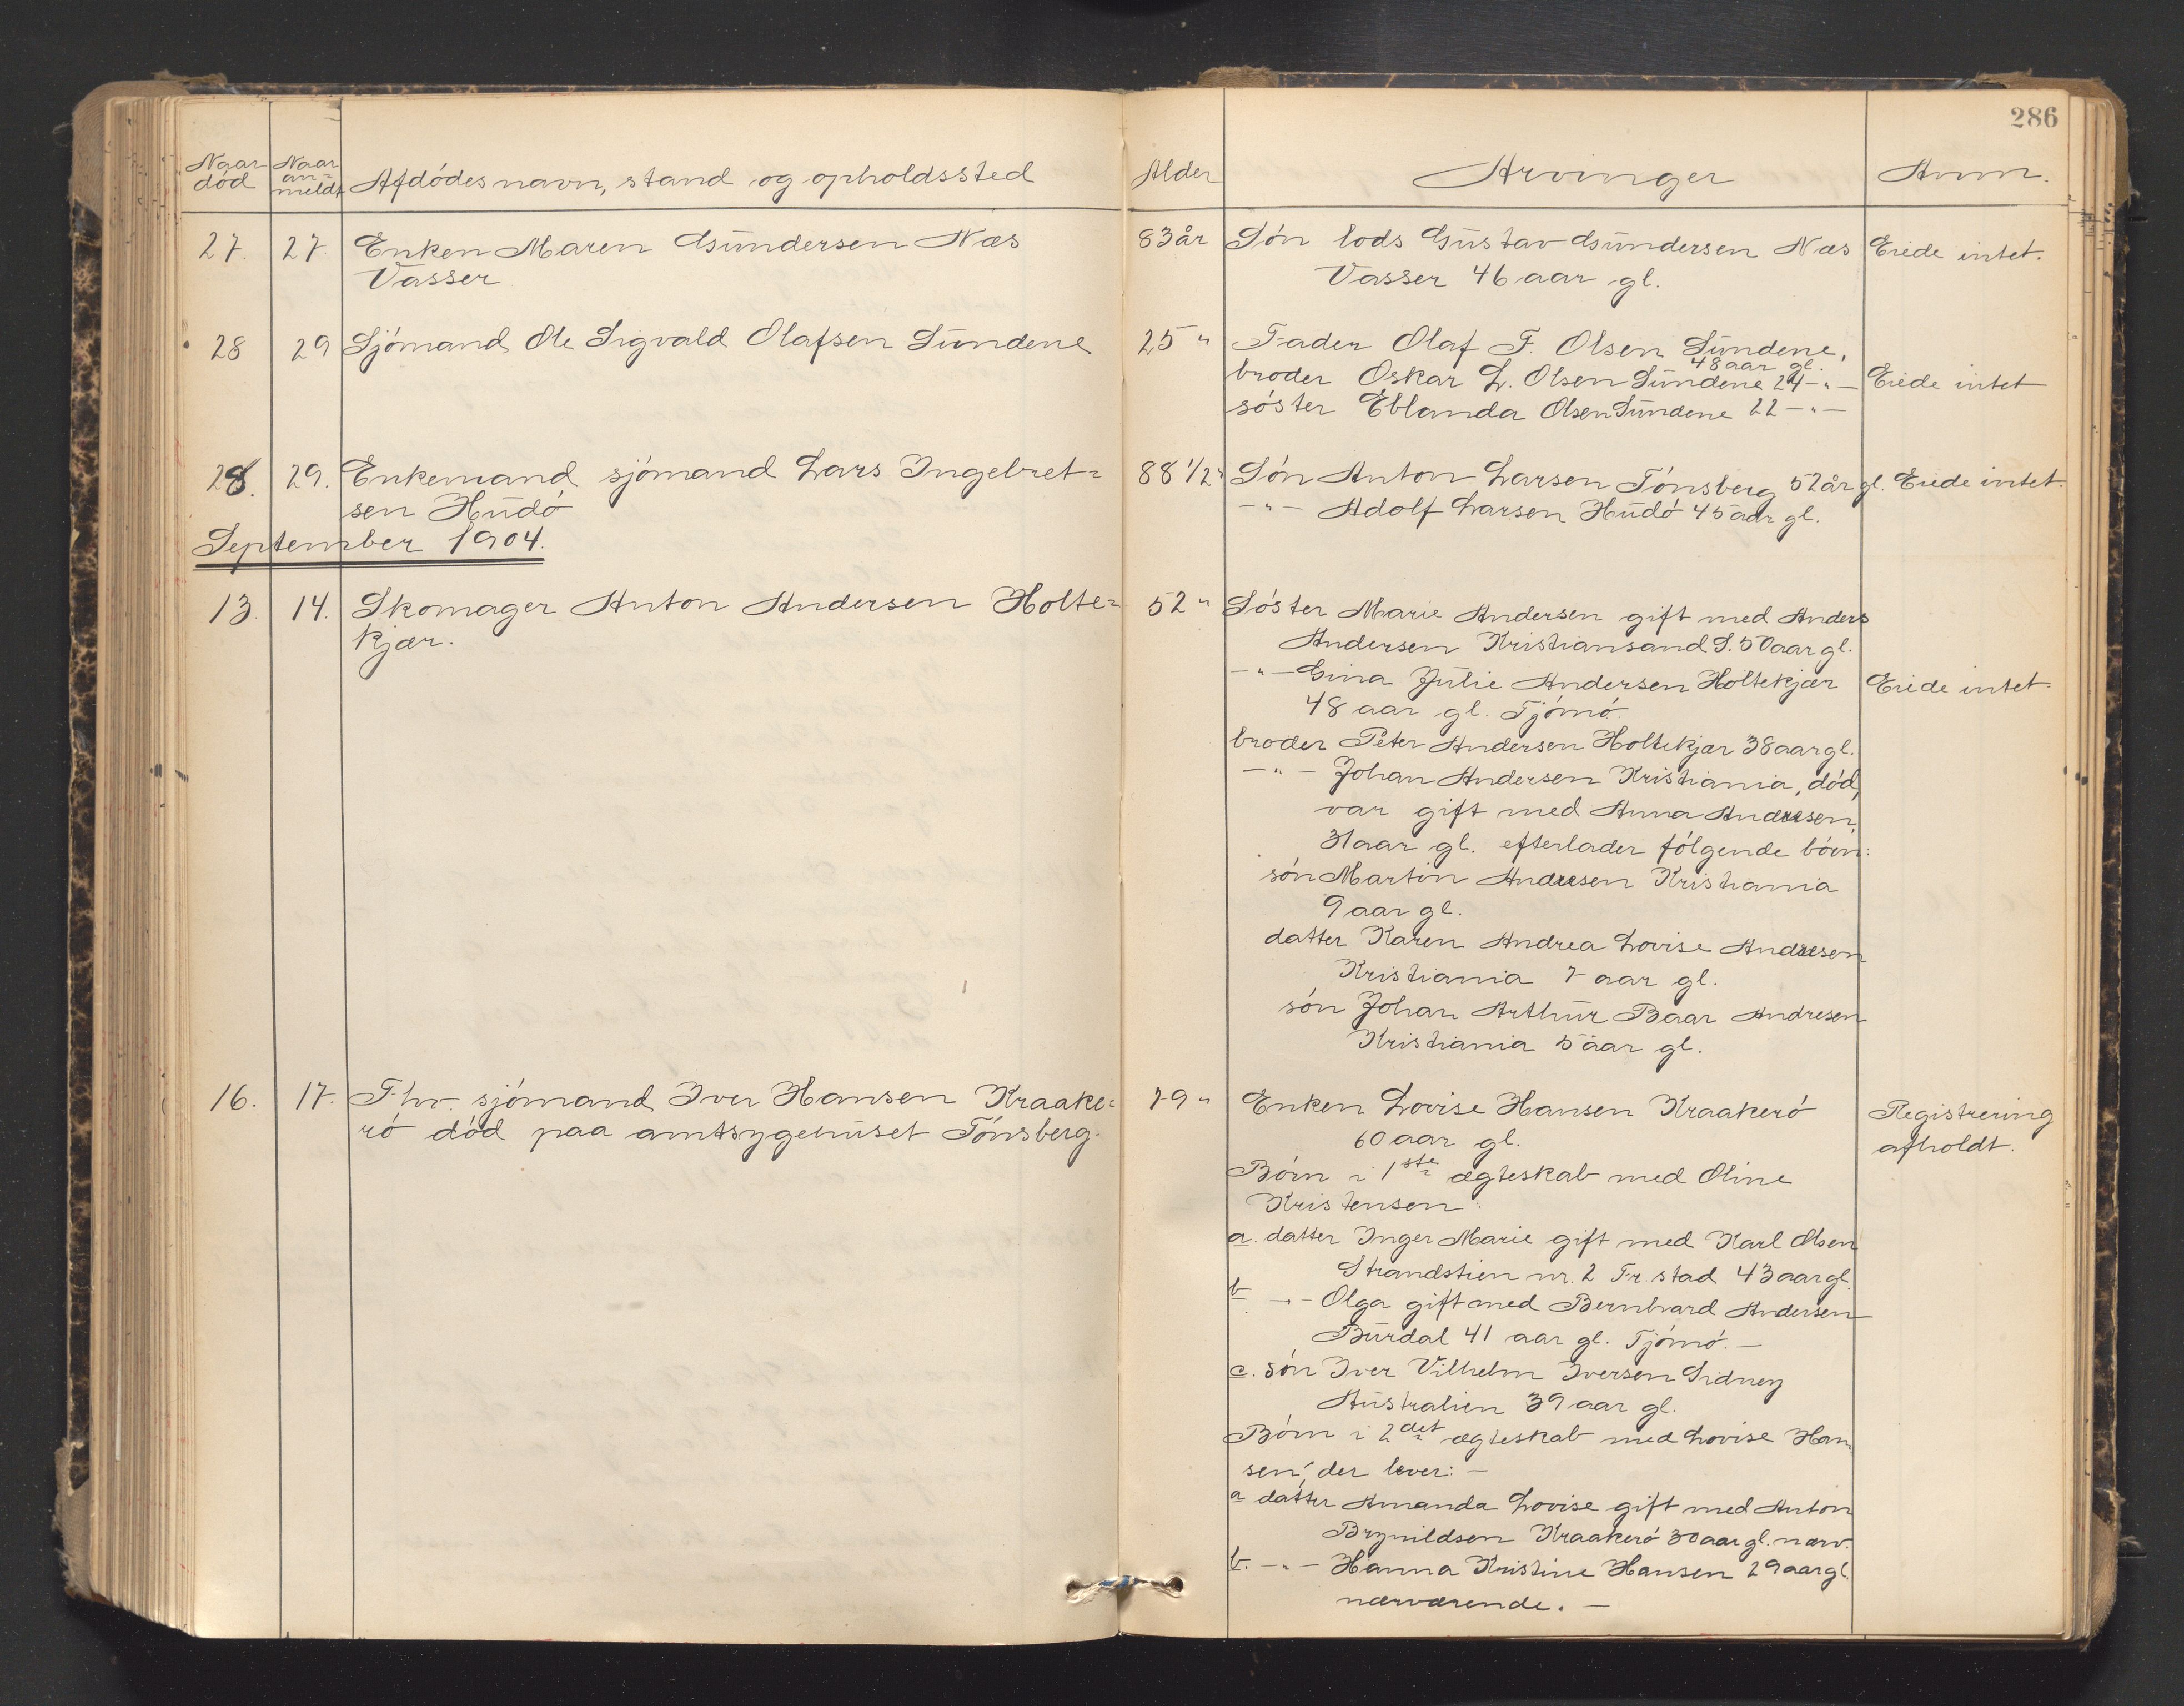 286
Naar død
Naar an-meldt
Afdødes navn, stand og opholdssted
Alder
Arvinger
Anm.
27. 27. Enken Maren Gundersen Næs
Vasser
83 år
Søn lods Gustav Gundersen Næs
Vasser 46 aar gl.
Eiede intet.
28 29 Sjømand Ole Sigvald Olafsen Sundene
25 "
Fader Olaf F. Olsen Sundene,
48 aar gl.
broder Oskar L. Olsen Sundene 24 -"-
søster Eblanda Olsen Sundene 22 -"-
Eiede intet
28. 29. Enkemand sjømand Lars Ingebret=
sen Hudø
88 1/2 "
Søn Anton Larsen Tønsberg 52 år gl.
-"- Adolf Larsen Hudø 45 aar gl.
Eiede intet.
September 1904.
13. 14. Skomager Anton Andersen Holte=
kjær.
52 "
Søster Marie Andersen gift med Anders
Andersen Kristiansand S. 50 aar gl.
-"- Gina Julie Andersen Holtekjær
48 aar gl. Tjømø.
Eiede intet.
broder Peter Andersen Holtekjær 38 aar gl.
-"- Johan Andersen Kristiania, død,
var gift med Anna Andresen,
31 aar gl. efterlader følgende børn:
søn Martin Andresen Kristiania
9 aar gl.
datter Karen Andrea Lovise Andresen
Kristiania 7 aar gl.
søn Johan Arthur Baar Andresen
Kristiania 5 aar gl.
16. 17. Fhv. sjømand Iver Hansen Kraake=
rø død paa amtsygehuset Tønsberg.
79 "
Enken Lovise Hansen Kraakerø
60 aar gl.
Registrering
afholdt.
Børn i 1ste ægteskab med Oline
Kristensen:
a. datter Inger Marie gift med Karl Olsen
Strandstien nr. 2 Fr.stad 43 aar gl.
b. -"- Olga gift med Bernhard Andersen
Burdal 41 aar gl. Tjømø. -
c. søn Iver Vilhelm Iversen Sidney
Australien 39 aar gl.
Børn i 2det ægteskab med Lovise Han-
sen, der lever: -
a datter Amanda Lovise gift med Anton
Brynildsen Kraakerø 30 aar gl. nærv.
b. -"- Hanna Kristine Hansen 29 aar gl.
nærværende. -